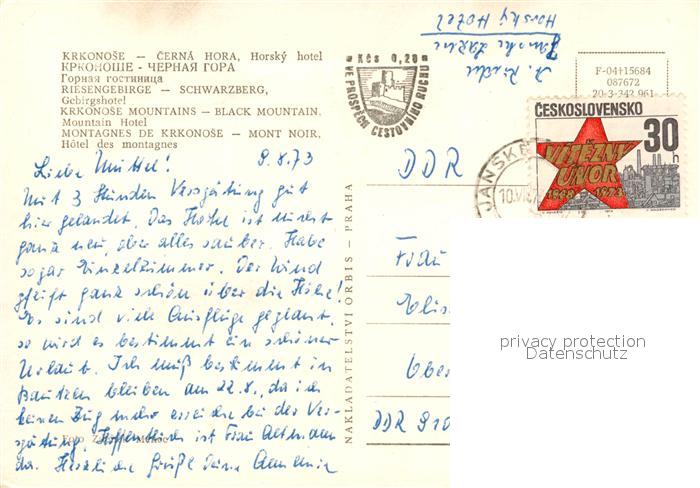 KRKONOŠE — ČERNÁ HORA, Horský hotel
КРКОНОШЕ - ЧЕРНАЯ ГОРА
Горная гостиница
RIESENGEBIRGE — SCHWARZBERG,
Gebirgshotel
KRKONOŠE MOUNTAINS — BLACK MOUNTAIN,
Mountain Hotel
MONTAGNES DE KRKONOŠE — MONT NOIR,
Hôtel des montagnes
Liebe Muttel! 9.8.73
Mit 3 Stunden Verspätung gut
hier gelandet. Das Hotel ist nicht
ganz neu, aber alles sauber. Habe
sogar Einzelzimmer. Der Wind
pfeift ganz schön über die Höhe!
Es sind viele Ausflüge geplant,
so wird es bestimmt ein schöner
Urlaub. Ich muß bestimmt in
Bautzen bleiben am 22.8., da ich
keinen Zug mehr erreiche bei der Ver-
spätung. Hoffentlich ist Frau
da. Herzliche Grüße Deine
Foto
NAKLADATELSTVÍ ORBIS — PRAHA
Kčs 0,20
VE PROSPĚCH CESTOVNÍHO RUCHU
Horský Hotel
F-04†15684
087672
20-3-342 961
ČESKOSLOVENSKO
30 h
VÍTĚZNÝ
ÚNOR
1948 1973
JANSKÉ
10.VIII
DDR
Frau
Elis
Ober
DDR 910
privacy protection
Datenschutz